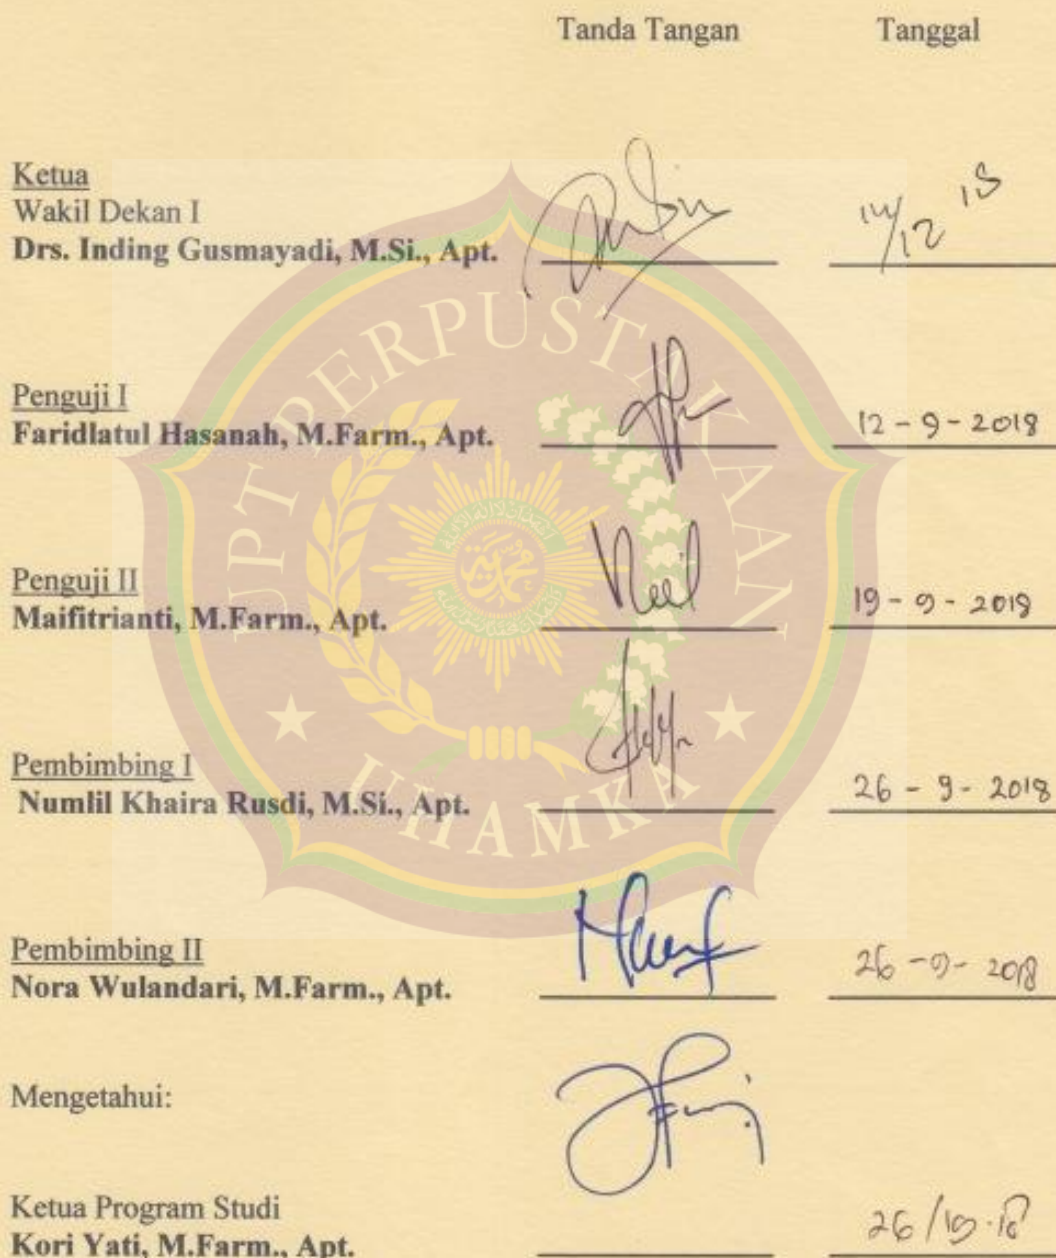 Tanda Tangan Tanggal
Ketua
Wakil Dekan I
Drs. Inding Gusmayadi, M.Si., Apt. 14/12 18
Penguji I
Faridlatul Hasanah, M.Farm., Apt. 12 - 9 - 2018
Penguji II
Maifitrianti, M.Farm., Apt. 19 - 9 - 2018
Pembimbing I
Numlil Khaira Rusdi, M.Si., Apt. 26 - 9 - 2018
Pembimbing II
Nora Wulandari, M.Farm., Apt. 26 - 9 - 2018
Mengetahui:
Ketua Program Studi
Kori Yati, M.Farm., Apt.
UPT PERPUSTAKAAN
UHAMKA